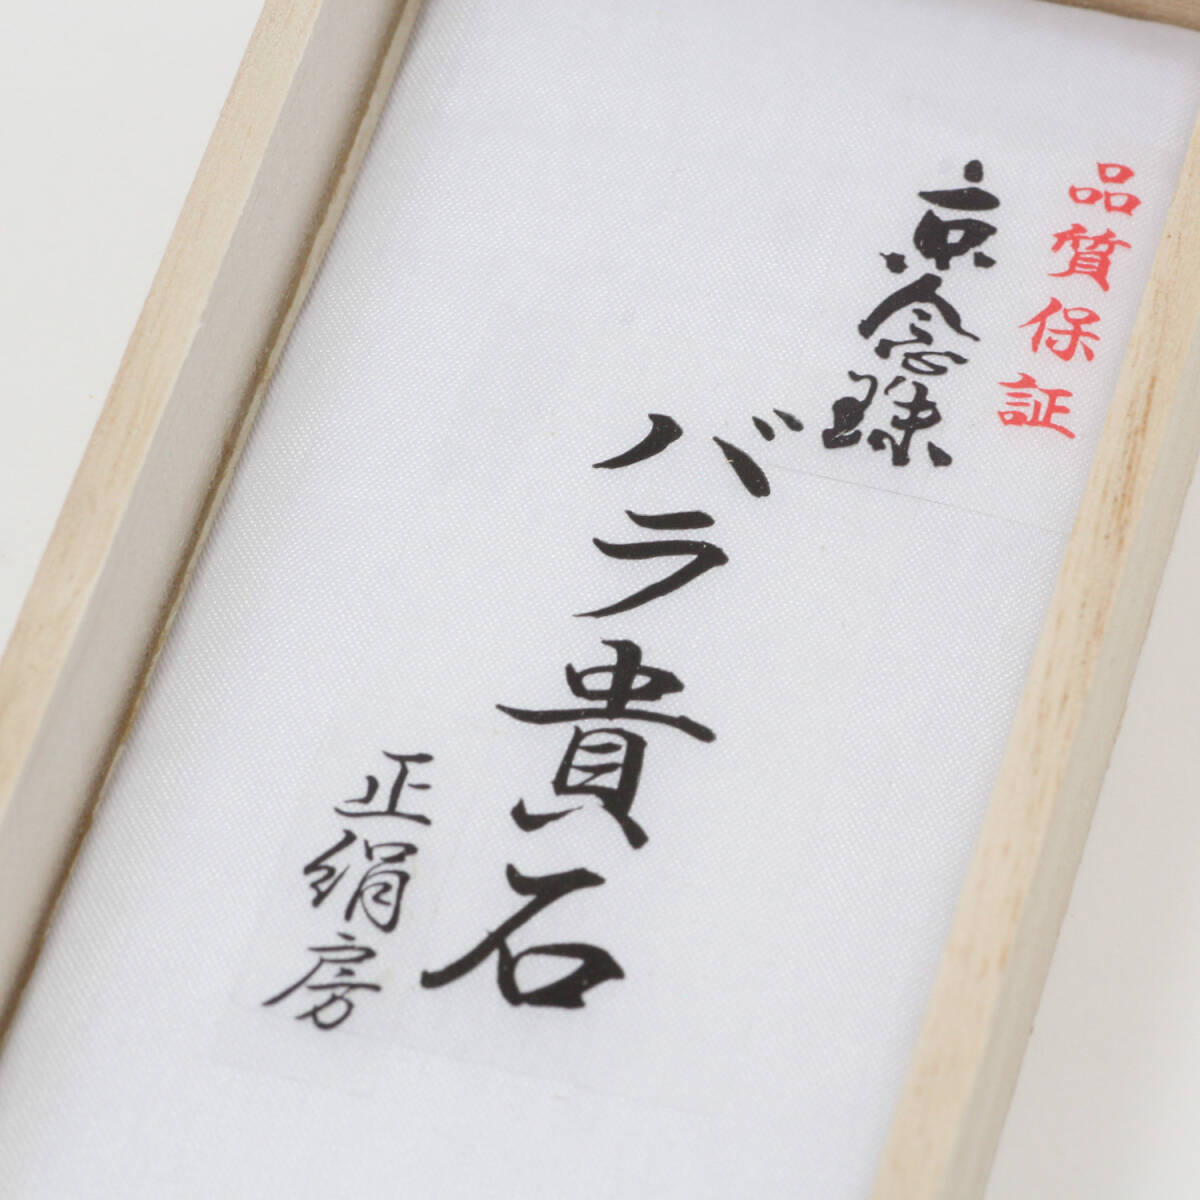 品質保証
京念珠
バラ貴石
正絹房